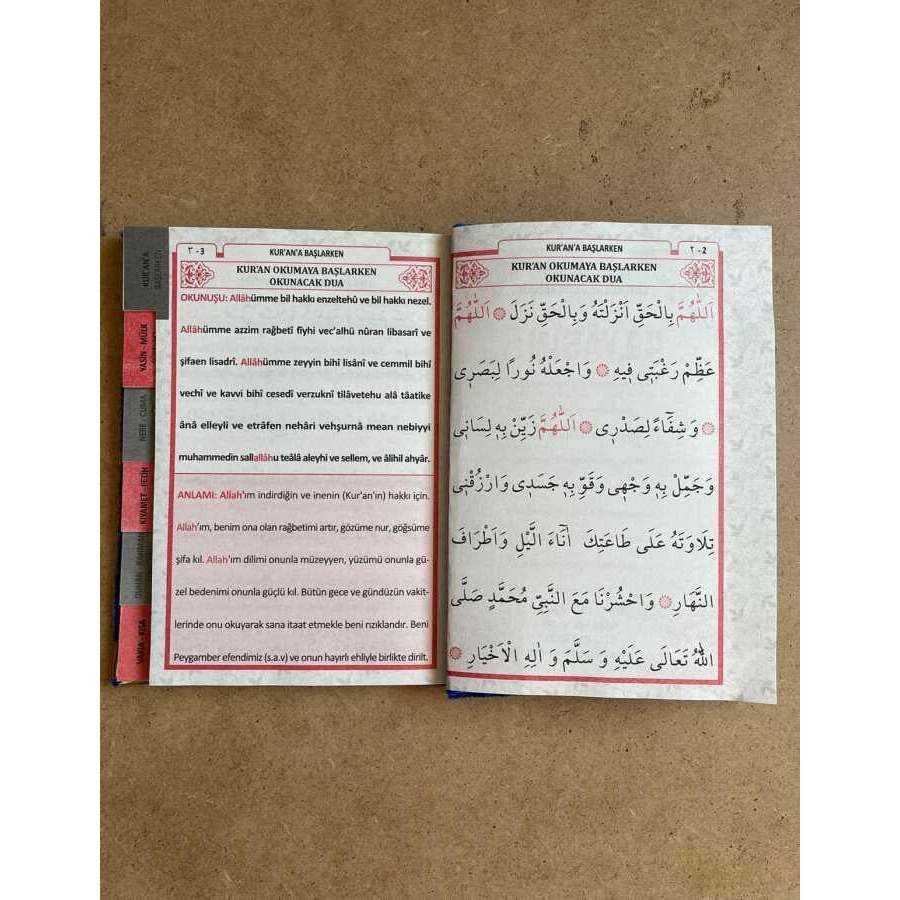 KUR'AN'A BAŞLARKEN
٢ - 2
KUR'AN OKUMAYA BAŞLARKEN
OKUNACAK DUA
اَللّٰهُمَّ بِالْحَقِّ اَنْزَلْتَهُ وَبِالْحَقِّ نَزَلَ اَللّٰهُمَّ
عَظِّمْ رَغْبَتٖى فٖيهِ وَاجْعَلْهُ نُورًا لِبَصَرٖى
وَشِفَٓاءً لِصَدْرٖى اَللّٰهُمَّ زَيِّنْ بِهٖ لِسَانٖى
وَجَمِّلْ بِهٖ وَجْهٖى وَقَوِّ بِهٖ جَسَدٖى وَارْزُقْنٖى
تِلَاوَتَهُ عَلٰى طَاعَتِكَ اٰنَٓاءَ الَّيْلِ وَاَطْرَافَ
النَّهَارِ وَاحْشُرْنَا مَعَ النَّبِيِّ مُحَمَّدٍ صَلَّى
اللّٰهُ تَعَالٰى عَلَيْهِ وَ سَلَّمَ وَ اٰلِهِ الْاَخْيَارِ
٣ - 3
KUR'AN'A BAŞLARKEN
KUR'AN OKUMAYA BAŞLARKEN
OKUNACAK DUA
OKUNUŞU: Allâhümme bil hakkı enzeltehû ve bil hakkı nezel.
Allâhümme azzim rağbetî fîyhi vec'alhü nûran libasarî ve
şifaen lisadrî. Allâhümme zeyyin bihî lisânî ve cemmil bihî
vechî ve kavvi bihî cesedî verzuknî tilâvetehu alâ tâatike
ânâ elleyli ve etrâfen nehâri vehşurnâ mean nebiyyi
muhammedin sallallâhu teâlâ aleyhi ve sellem, ve âlihil ahyâr.
ANLAMI: Allah'ım indirdiğin ve inenin (Kur'an'ın) hakkı için.
Allah'ım, benim ona olan rağbetimi artır, gözüme nur, göğsüme
şifa kıl. Allah'ım dilimi onunla müzeyyen, yüzümü onunla gü-
zel bedenimi onunla güçlü kıl. Bütün gece ve gündüzün vakit-
lerinde onu okuyarak sana itaat etmekle beni rızıklandır. Beni
Peygamber efendimiz (s.a.v) ve onun hayırlı ehliyle birlikte dirilt.
KUR'AN'A
BAŞLARKEN
YASİN - MÜLK
NEBE - CUMA